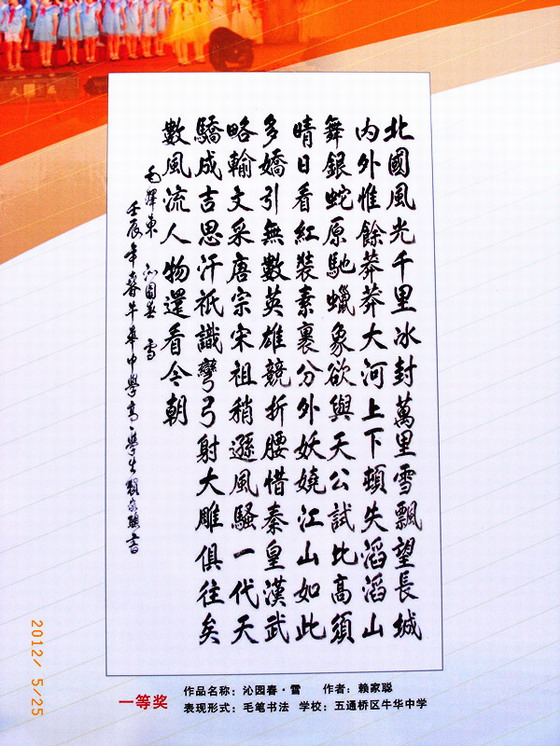 北國風光千里冰封萬里雪飄望長城
内外惟餘莽莽大河上下頓失滔滔山
舞銀蛇原馳蠟象欲與天公試比高須
晴日看紅裝素裹分外妖嬈江山如此
多嬌引無數英雄競折腰惜秦皇漢武
略輸文采唐宗宋祖稍遜風騷一代天
驕成吉思汗祇識彎弓射大雕俱往矣
數風流人物還看今朝
毛澤東 沁園春 雪
壬辰年春牛華中學高一學生賴家聰書
一等奖
作品名称：沁园春·雪 作者：赖家聪
表现形式：毛笔书法 学校：五通桥区牛华中学
2012/ 5/25